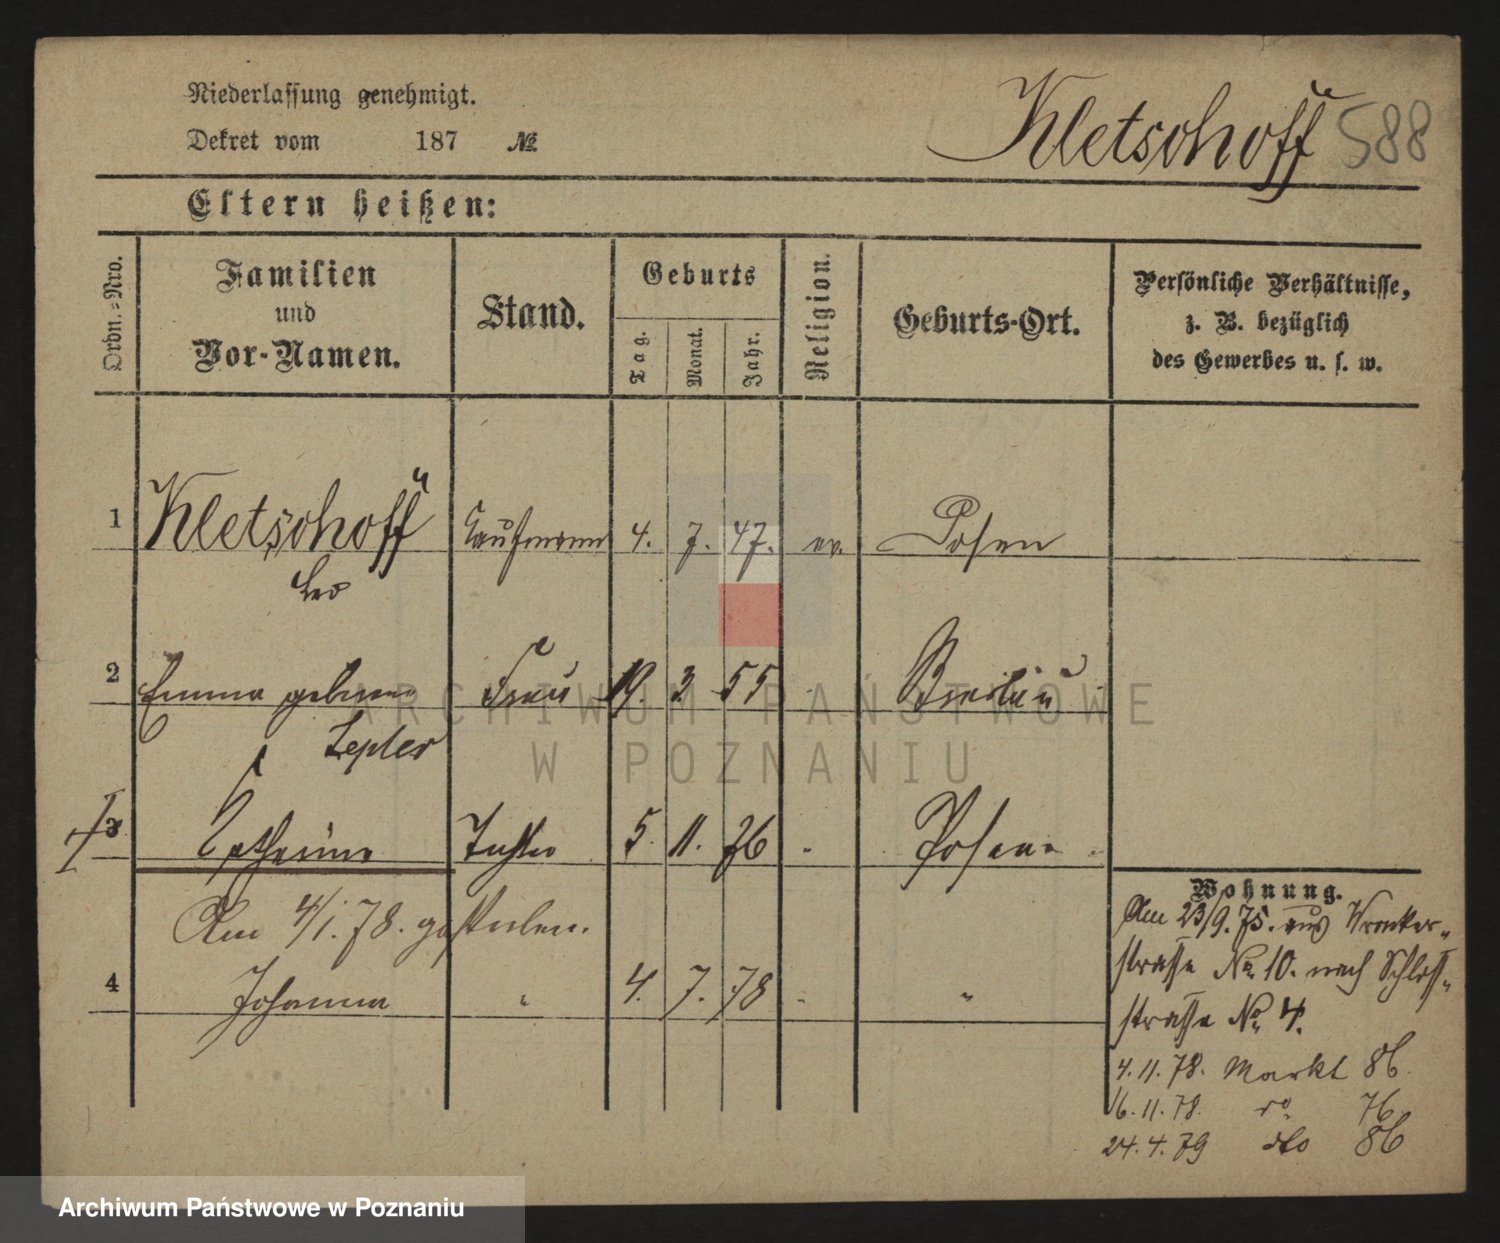 Niederlassung genehmigt.
Dekret vom 187 №
Kletschoff 588
Eltern heißen:
Ordn.-Nro.
Familien
und
Vor-Namen.
Stand.
Geburts
Tag.
Monat.
Jahr.
Religion.
Geburts-Ort.
Persönliche Verhältnisse,
z. B. bezüglich
des Gewerbes u. s. w.
1 Kletschoff Kaufmann 4. 7. 47. ev. Posen
Leo
2 Emma geborene Frau 19. 3 55 Breslau
Lepler
3 Catharine Tochter 5. 11. 76 Posen
Am 4/1. 78. gestorben.
4 Johanna " 4. 7. 78 "
Wohnung.
Am 23/9. 75. aus Wronker-
strasse No. 10. nach Schloss-
strasse No 4.
4. 11. 78. Markt 86.
16. 11. 78. do 76
24. 4. 79 dto 86
ARCHIWUM PAŃSTWOWE
W POZNANIU
Archiwum Państwowe w Poznaniu